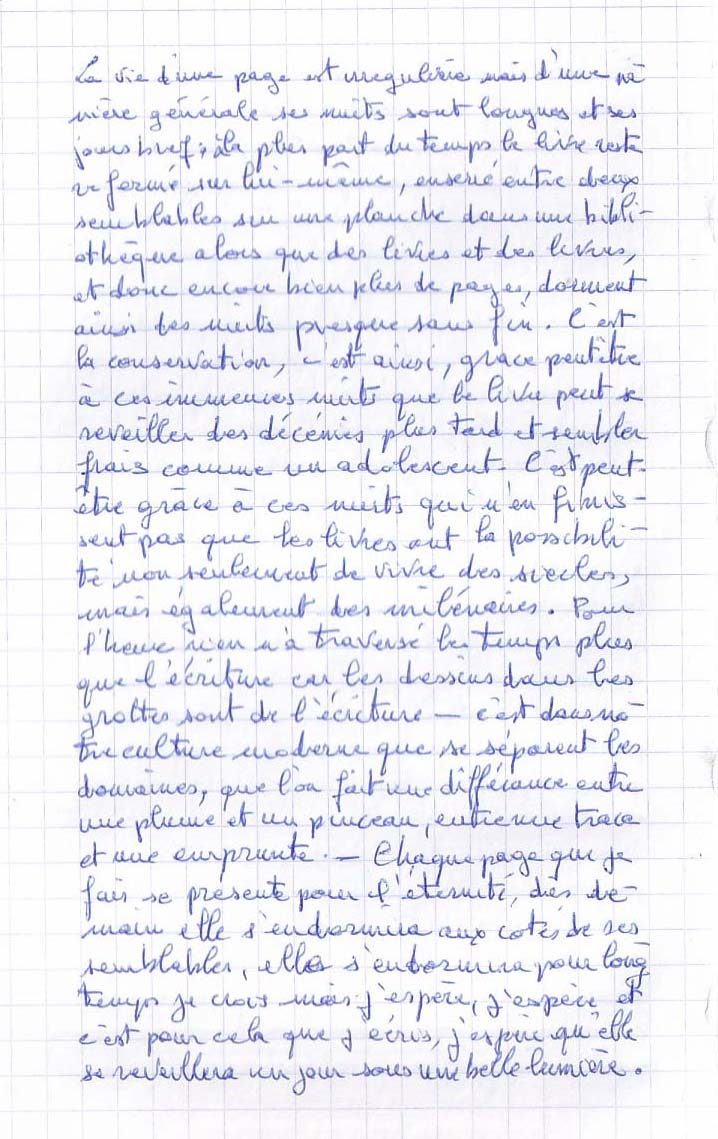 La vie d'une page est irregulière mais d'une ma
nière générale ses nuits sont longues et ses
jours brefs, la plus part du temps le livre reste
refermé sur lui-même, enserré entre deux
semblables sur une planche dans une bibli-
othèque alors que des livres et des livres,
et donc encore bien plus de pages, dorment
ainsi des nuits presque sans fin. C'est
la conservation, c'est ainsi, grace peut être
à ces immenses nuits que le livre peut se
reveiller des décénies plus tard et sembler
frais comme un adolescent. C'est peut-
être grâce à ces nuits qui n'en finis-
sent pas que les livres ont la possibili-
té non seulement de vivre des siecles,
mais également des millénaires. Pour
l'heure rien n'a traversé le temps plus
que l'écriture car les dessins dans les
grottes sont de l'écriture — c'est dans no
tre culture moderne que se séparent les
domaines, que l'on fait une différence entre
une plume et un pinceau, entre une trace
et une emprunte. — Chaque page que je
fais se présente pour l'éternité, dès de-
main elle s'endormira aux cotés de ses
semblables, elle s'endormira pour long
temps je crois mais j'espère, j'espère et
c'est pour cela que j'écris, j'espère qu'elle
se reveillera un jour sous une belle lumière.